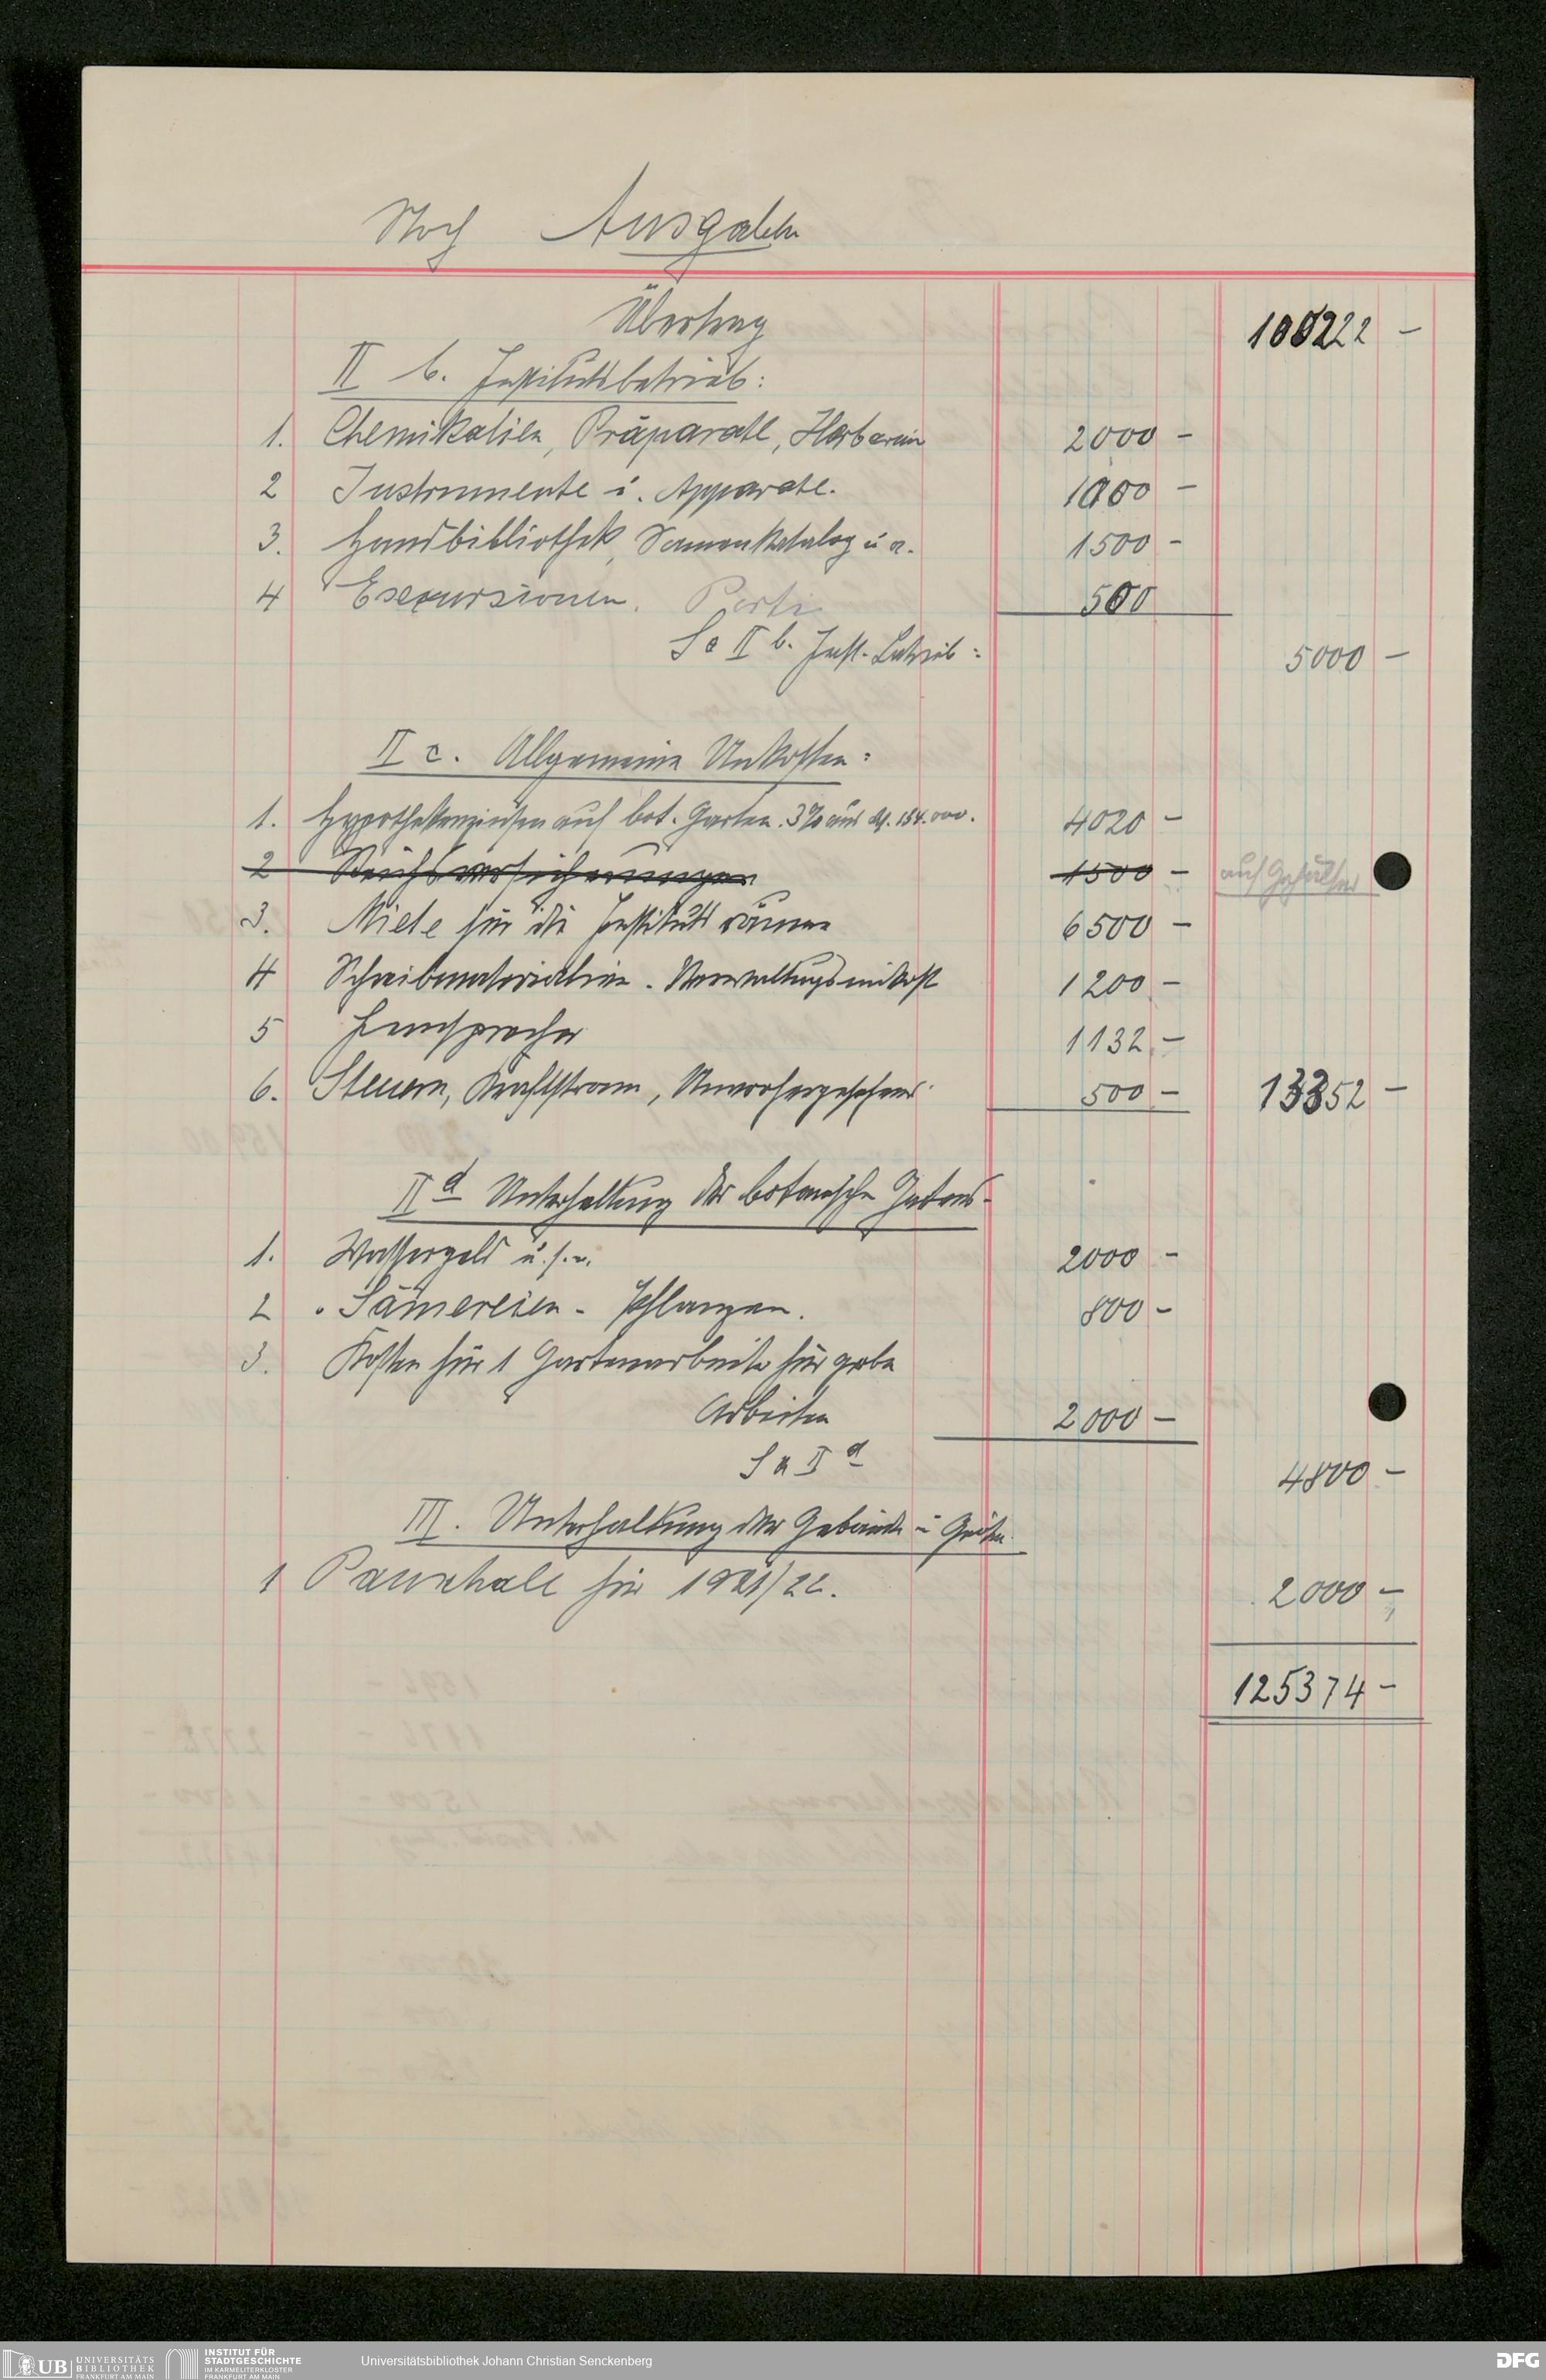 Noch Ausgaben
Übertrag 100222 –
II b. Institutsbetrieb:
1. Chemikalien, Präparate, Herbarium 2000 –
2 Instrumente u. Apparate. 1000 –
3. Handbibliothek, Samenkatalog u a. 1500 –
4 Excursionen. Porti 500
Sa II b. Inst. Betrieb: 5000 –
II c. Allgemeine Unkosten:
1. Hypothekenzinsen auf bot. Garten. 3% aus M. 134.000. 4020 –
2 Reichsversicherungen 1500 – auf Gehälter
3. Miete für die Institutsräume 6500 –
4 Schreibmaterialien. Verwaltungsunkost 1200 –
5 Fernsprecher 1132 –
6. Steuern, Kraftstrom, Unvorhergesehenes 500 – 13352 –
II d Unterhaltung des botanischen Gartens –
1. Wassergeld u.s.w. 2000 –
2 Sämereien – Pflanzen. 800 –
3. Kosten für 1 Gartenarbeiter für grobe
Arbeiten 2000 –
Sa II d 4800 –
III. Unterhaltung der Gebäude u Geräte
1 Pauschale für 1921/22. 2000 –
125374 –
UB UNIVERSITÄTS
BIBLIOTHEK
FRANKFURT AM MAIN
INSTITUT FÜR
STADTGESCHICHTE
IM KARMELITERKLOSTER
FRANKFURT AM MAIN
Universitätsbibliothek Johann Christian Senckenberg
DFG